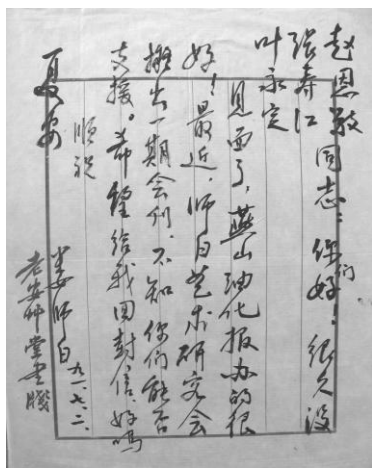 赵恩敬
张寿江同志：你们好！很久没
叶永定
见面了，燕山油化报办的很
好！最近，师白艺术研究会
擬出一期会刊，不知你们能否
支援。希望给我回封信，好吗
顺祝
夏安
娄师白
九一.七.二.
老安艸堂书牋